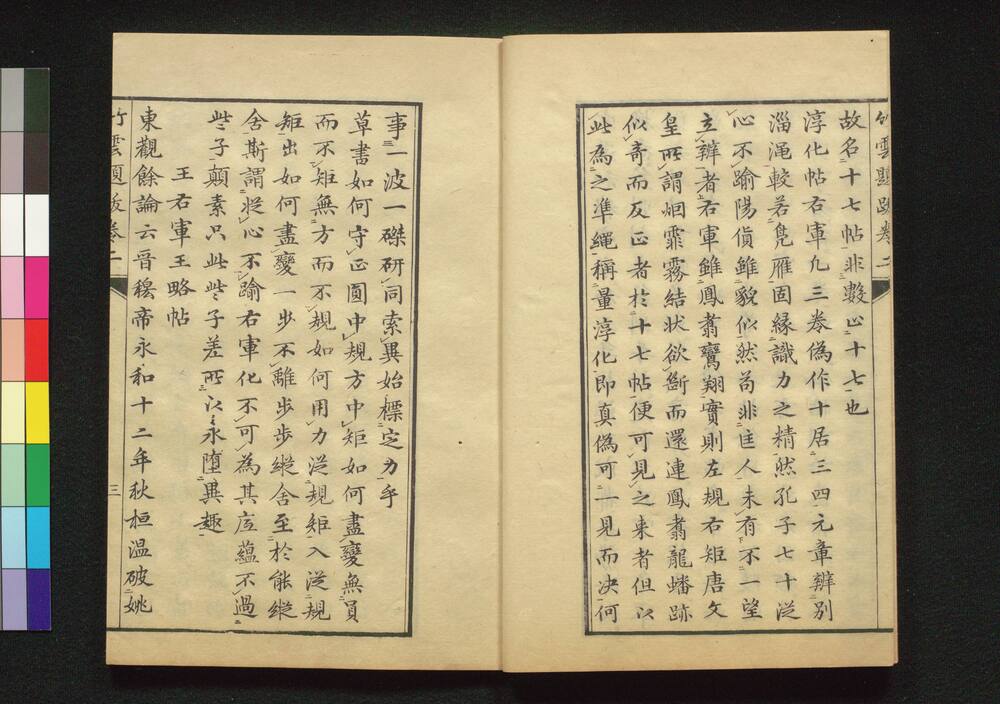 竹雲題跋卷二
故名十七帖非數止十七也
淳化帖右軍九三卷偽作十居三四元章辨別
淄澠較若鳧雁固緣識力之精然孔子七十從
心不踰陽貨雖貌似然苟非匡人未有不一望
立辨者右軍雖鳳翥鸞翔實則左規右矩唐文
皇所謂烟霏霧結狀欲斷而還連鳳翥龍蟠跡
似奇而反正者於十七帖便可見之来者但以
此為之準繩稱量淳化即真偽可一見而決何
事一波一磔研同索異始標定力乎
草書如何守正圓中規方中矩如何盡變無員
而不矩無方而不規如何用力從規矩入從規
矩出如何盡變一步不離步步縱舍至於能縱
舍斯謂從心不踰右軍化不可為其底蘊不過
些些子顛素只些些子差所以永墮異趣
王右軍王略帖
東觀餘論云晉穆帝永和十二年秋桓温破姚
竹雲題跋卷二
三